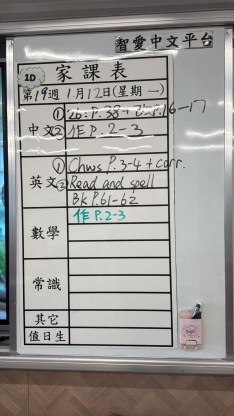 智愛中文平台
1D
家課表
第19週 1月12日(星期一)
中文
① 2b: P.38+ P.16-17
② 作 P.2-3
英文
① Chws P.3-4 + corr.
② Read and spell
Bk P.61-62
數學
作 P.2-3
常識
其它
值日生